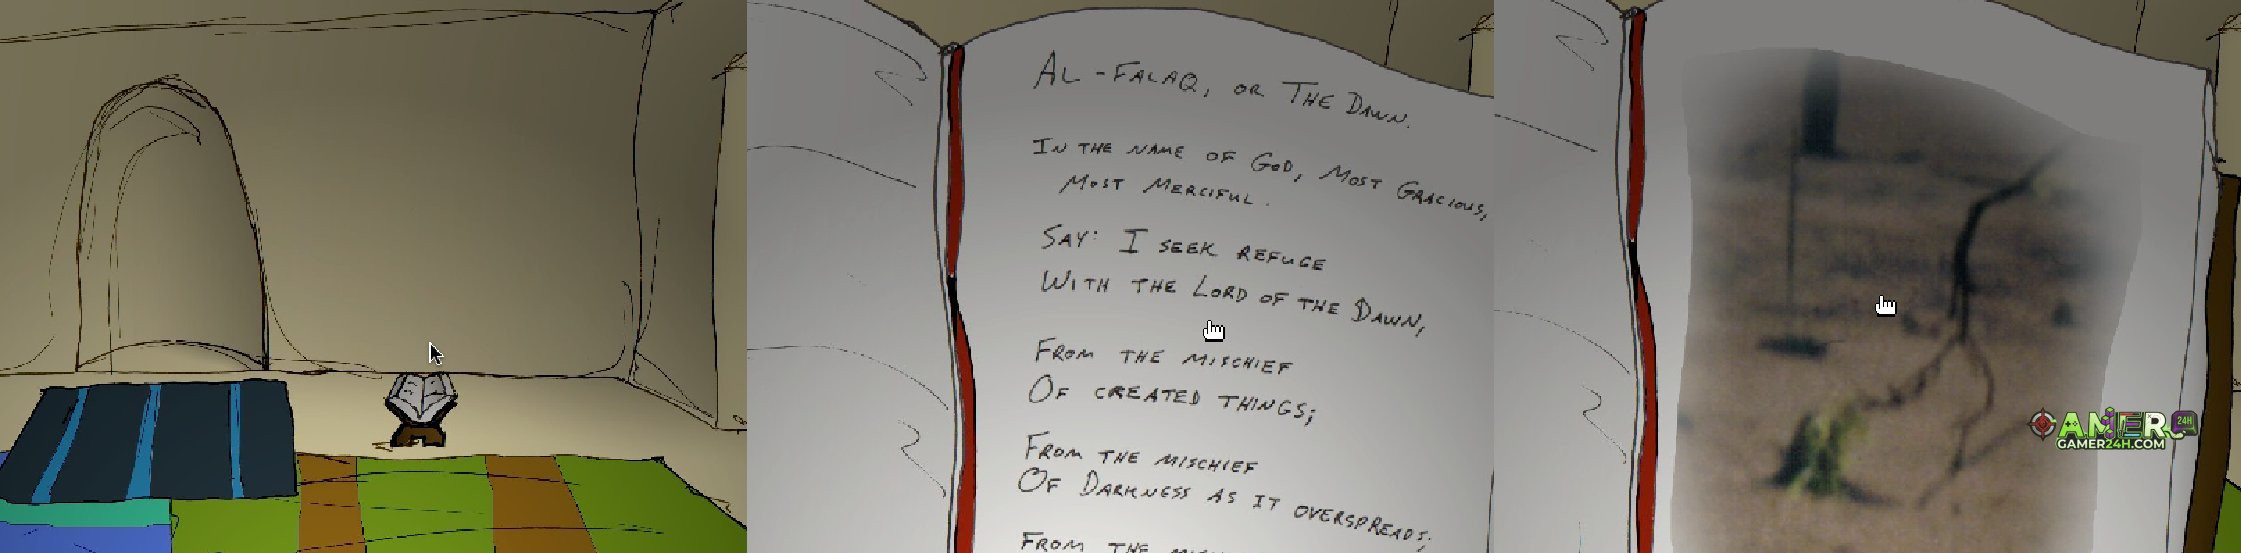 AL-FALAQ, OR THE DAWN.
IN THE NAME OF GOD, MOST GRACIOUS,
MOST MERCIFUL.
SAY: I SEEK REFUGE
WITH THE LORD OF THE DAWN,
FROM THE MISCHIEF
OF CREATED THINGS;
FROM THE MISCHIEF
OF DARKNESS AS IT OVERSPREADS;
FROM THE
GAMER
24H
GAMER24H.COM